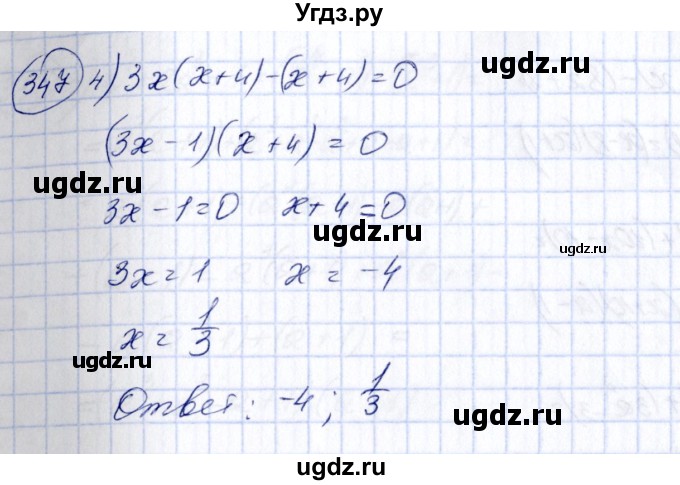 Угдз.ру
347 4) 3x(x+4)-(x+4)=0
ugdz.ru
(3x-1)(x+4)=0
ugdz.ru
3x-1=0 x+4=0
ugdz.ru
ugdz.ru
3x=1 x=-4
x=1/3
ugdz.ru
ugdz.ru
Ответ: -4; 1/3
ugdz.ru
ugdz.ru
ugdz.ru